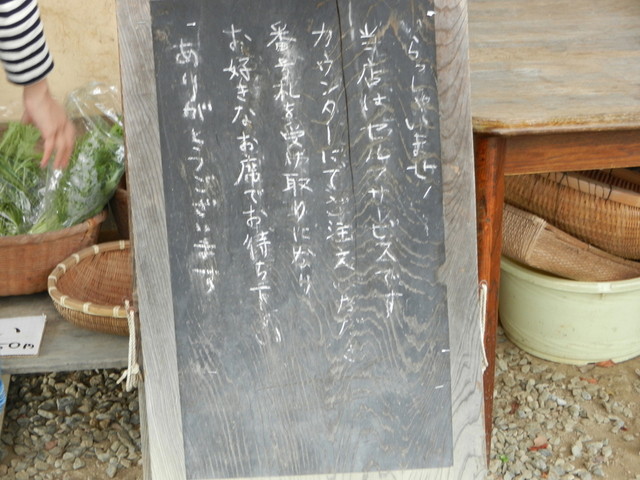 いらっしゃいませ！
当店はセルフサービスです
カウンターにてご注文いただき
番号札を受け取りになり
お好きなお席でお待ち下さい
ありがとうございます
い